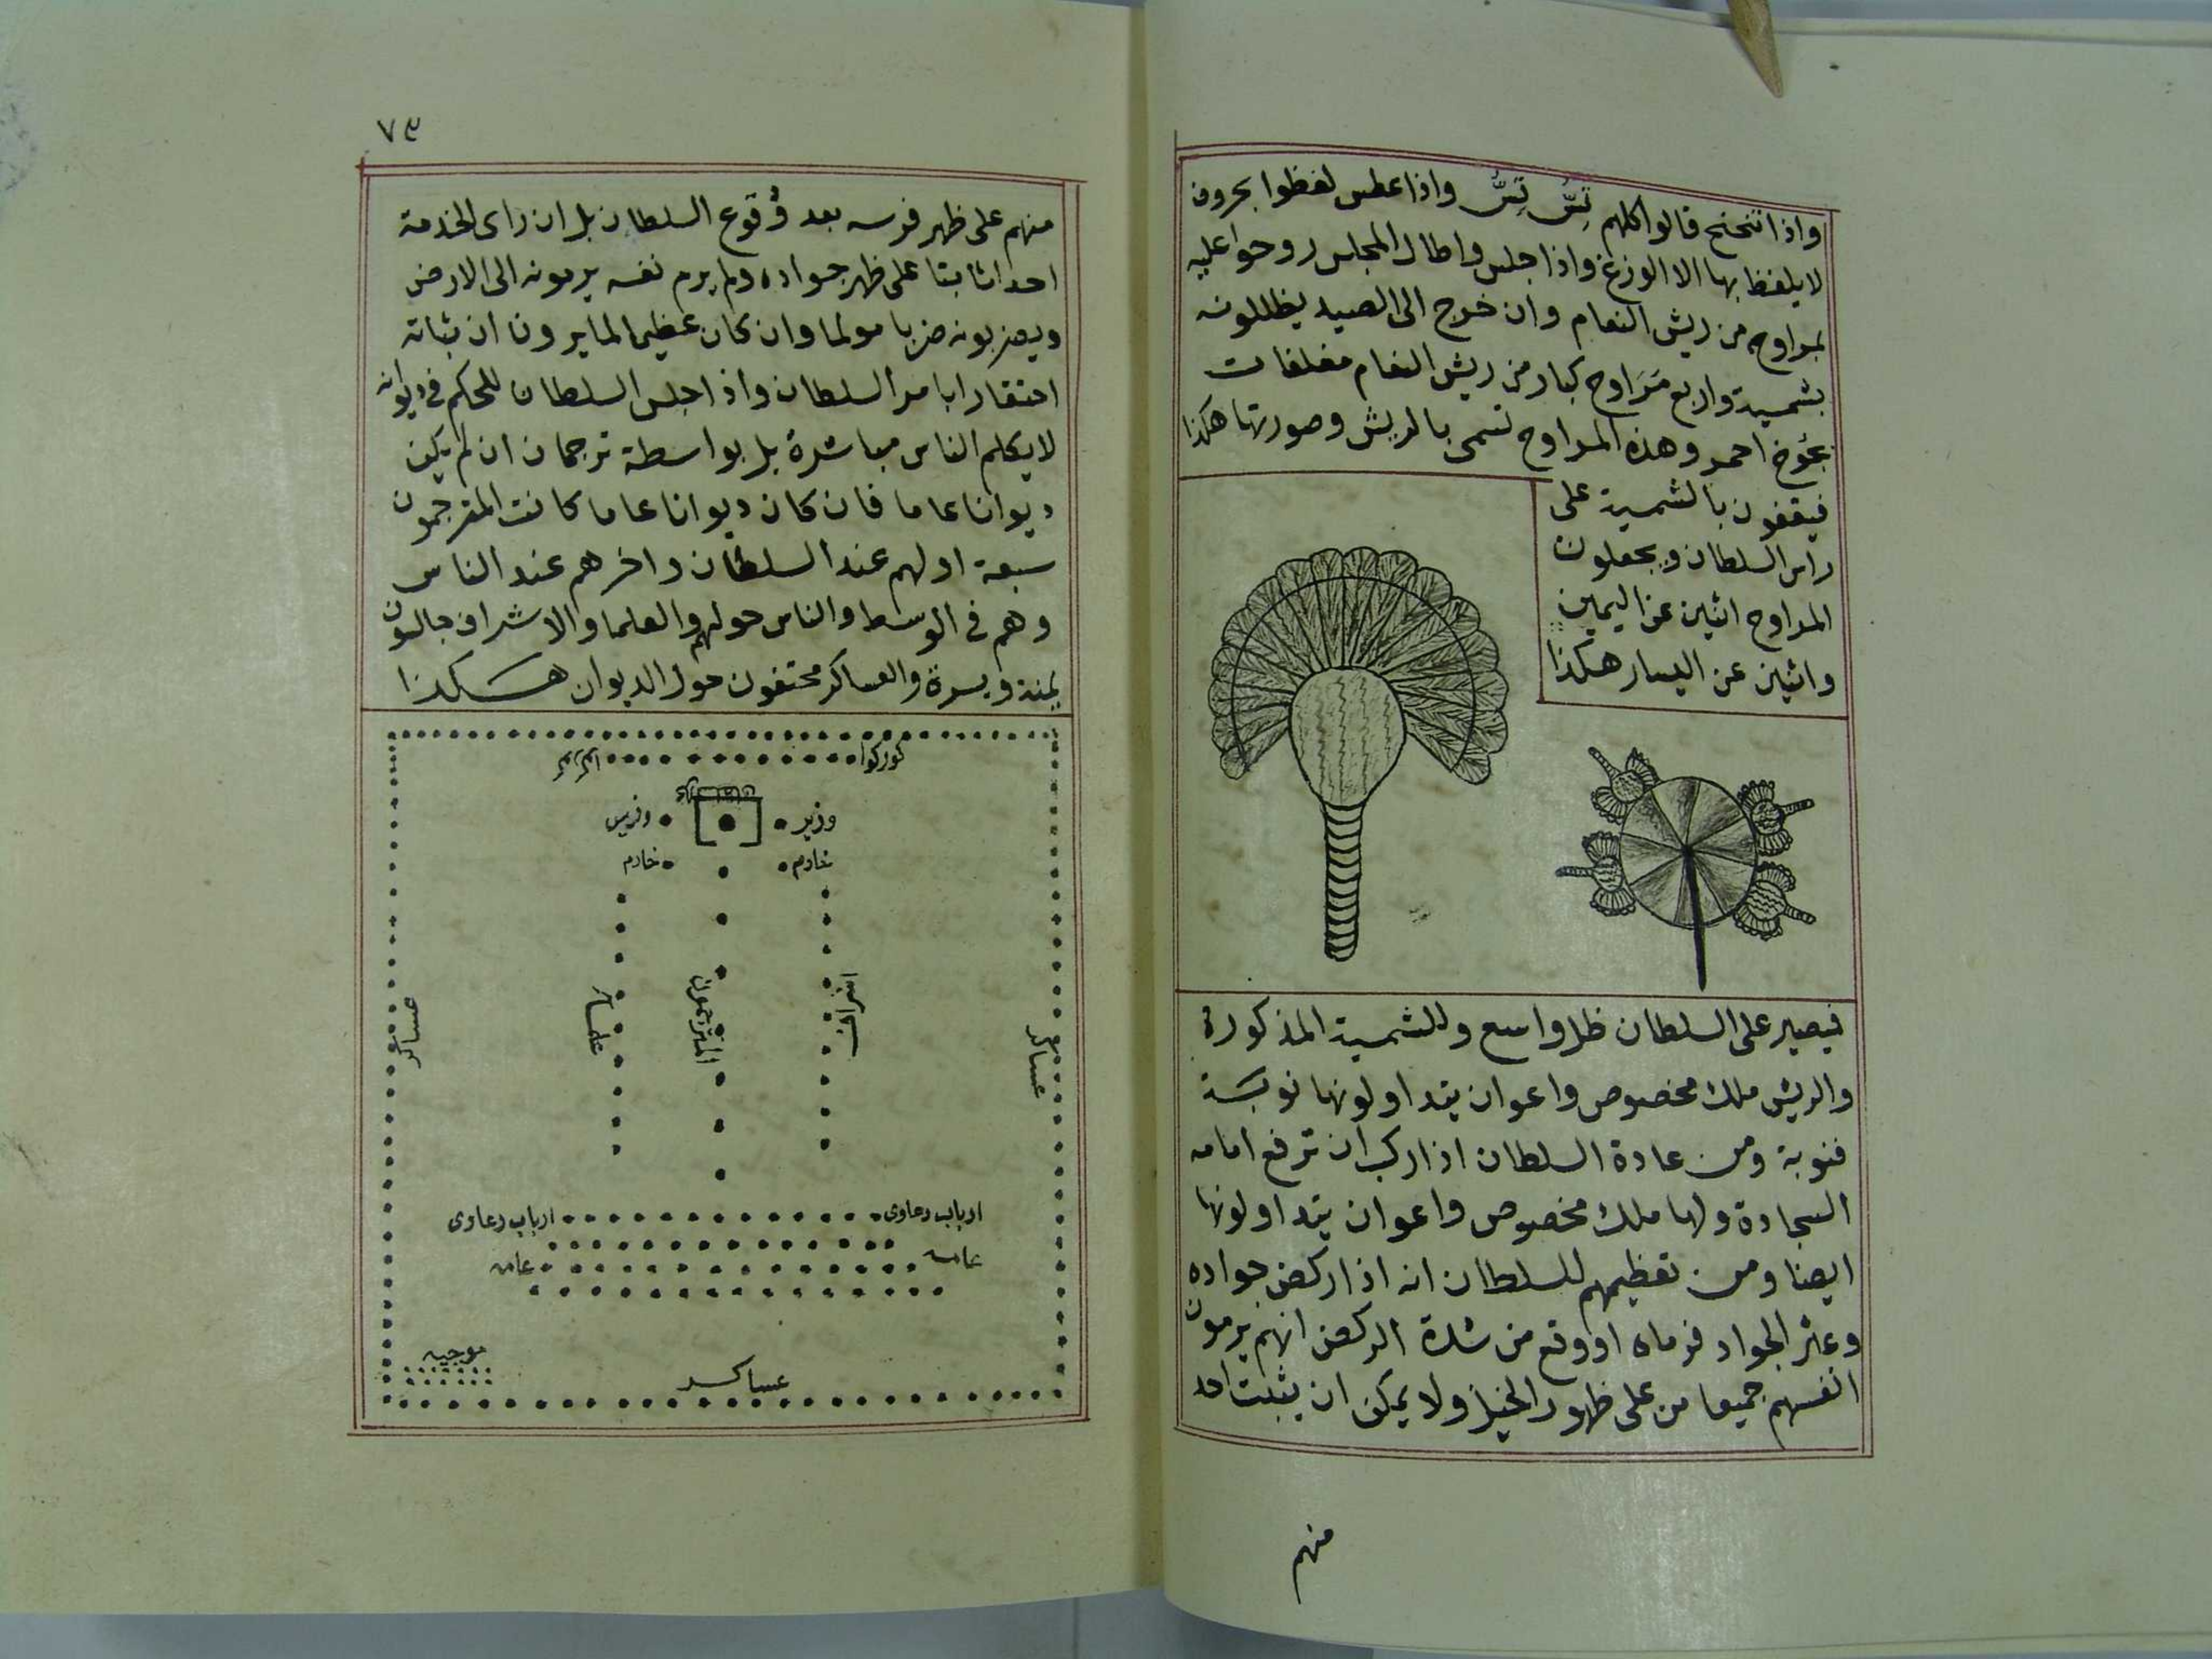 واذا تنحنح قالوا كلهم تِسُّ تِسُّ واذا عطس لغظوا بحروف
لا يلفظ بها الا الوزغ واذا جلس واطال المجلس روحوا عليه
بمراوح من ريش النعام وان خرج الى الصيد يظللونه
بشمسية واربع مَرَاوح كبار من ريش النعام مغلفات
بجوخ احمر وهذه المراوح تسمى بالريش وصورتها هكذا
فيقفون بالشمسية على
راس السلطان ويجعلون
المراوح اثنين عن اليمين
واثنين عن اليسار هكذا
فيصير على السلطان ظل واسع وللشمسية المذكورة
والريش ملك مخصوص واعوان يتداولونها نوبة
فنوبة ومن عادة السلطان اذا ركب ان ترفع امامه
السجادة ولها ملك مخصوص واعوان يتداولونها
ايضا ومن تعظيمهم للسلطان انه اذا ركض جواده
وعثر الجواد فرماه او وقع من شدة الركض انهم يرمون
انفسهم جميعا من على ظهور الخيل ولا يمكن ان يثبت احد
منهم
٧٩
منهم على ظهر فرسه بعد وُقوع السلطان بل ان راى الخدمة
احدا ثابتا على ظهر جواده ولم يرم نفسه يرمونه الى الارض
ويضربونه ضربا مولما وان كان عظيما لما يرون ان ثباته
احتقارا بامر السلطان واذا جلس السلطان للحكم في ديوانه
لا يكلم الناس مباشرة بل بواسطة ترجمان ان لم يكن
ديوانا عاما فان كان ديوانا عاما كانت المترجمون
سبعة اولهم عند السلطان واخرهم عند الناس
وهم في الوسط والناس حولهم والعلما والاشراف جالسون
يمنة ويسرة والعساكر محتفون حول الديوان هكذا
كوركوا
وزير
وزير
خادم
خادم
اشراف
المترجمون
علما
عساكر
عساكر
ارباب دعاوى
ارباب دعاوى
عامه
عامه
موجيه
عساكر